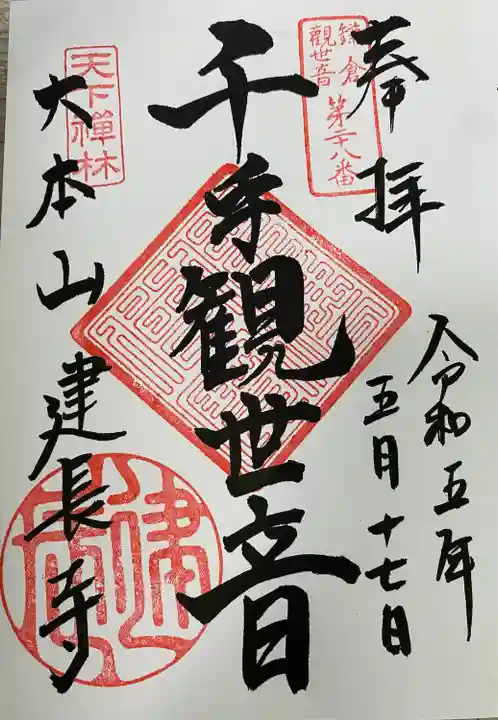 奉拝
鎌倉
觀世音
第二十八番
令和五年
五月十七日
千手観世音
天下禅林
大本山建長寺